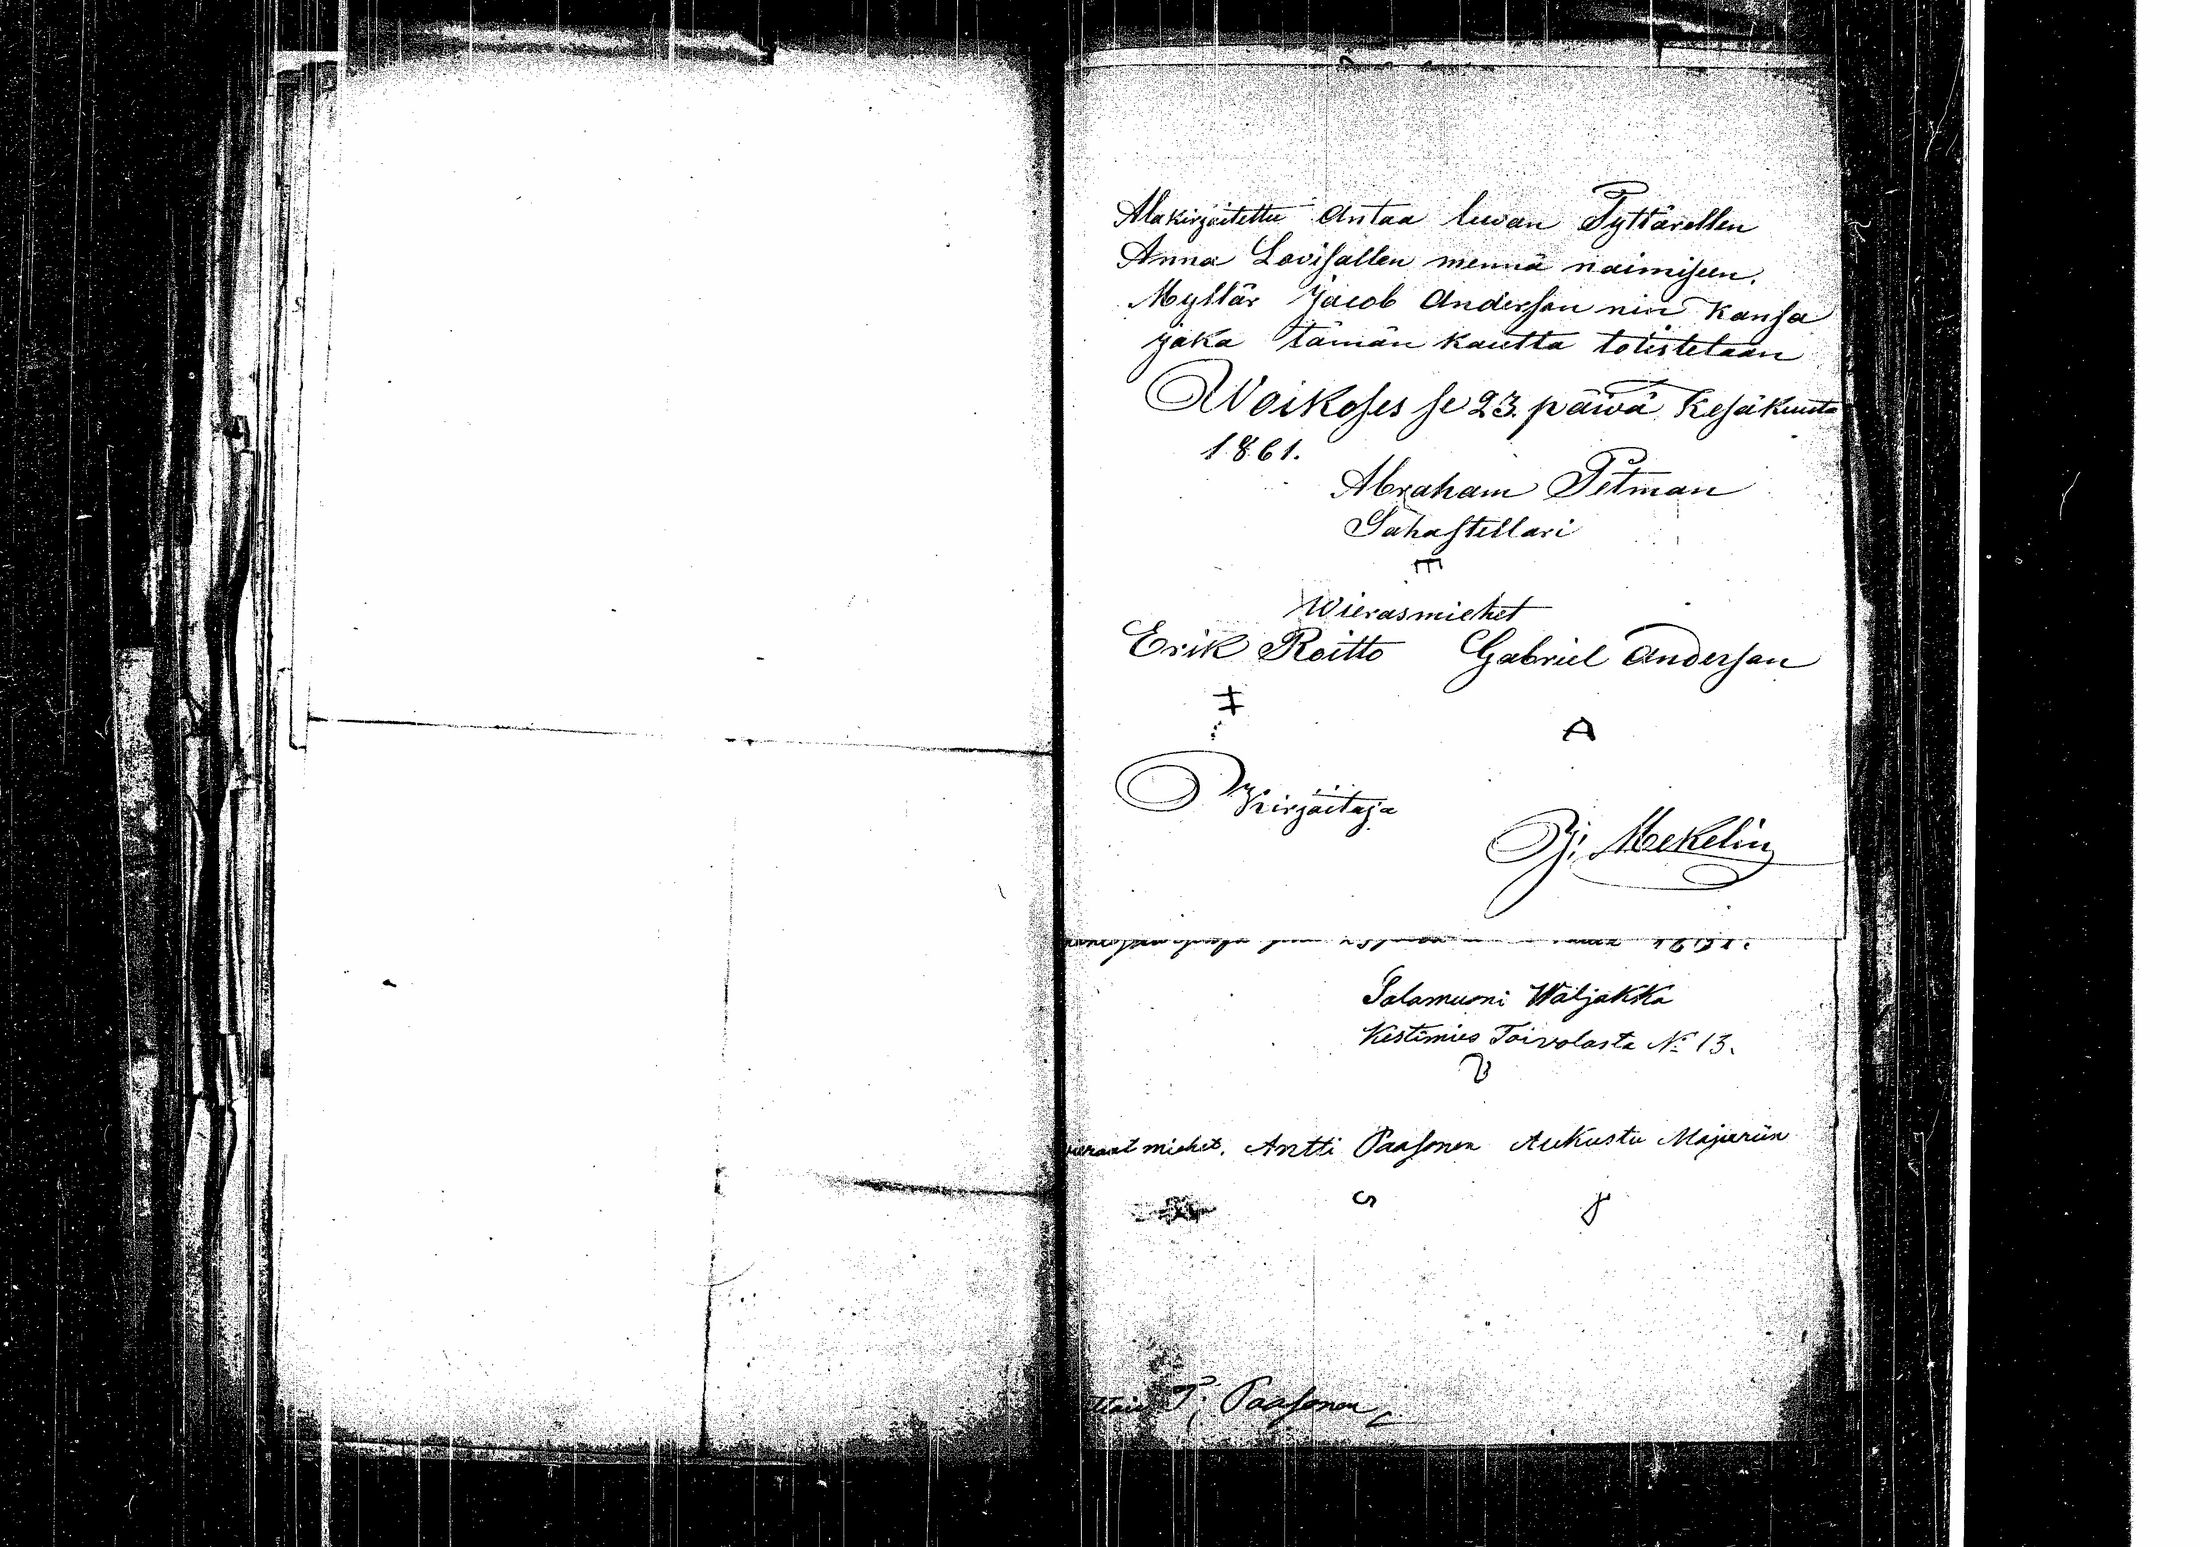 Alakirjoitettu antaa luvan Tyttärellen
Anna Lovisallen mennä naimiseen.
Myllär Jacob Anderson nin kansa
joka tämän kautta totistetaan
Woikoses se 23. päivä Kesäkuuta
1861.
Abraham Petman
Sahastellari
Wierasmiehet
Erik Roitto Gabriel Anderson
A
Kirjoitaja
J. Mekelin
Salamuoni Waljakka
Kestimies Toivolasta No 13.
vieraat miehet. Antti Paasonen Aukustu Majurin
T. Paasonen